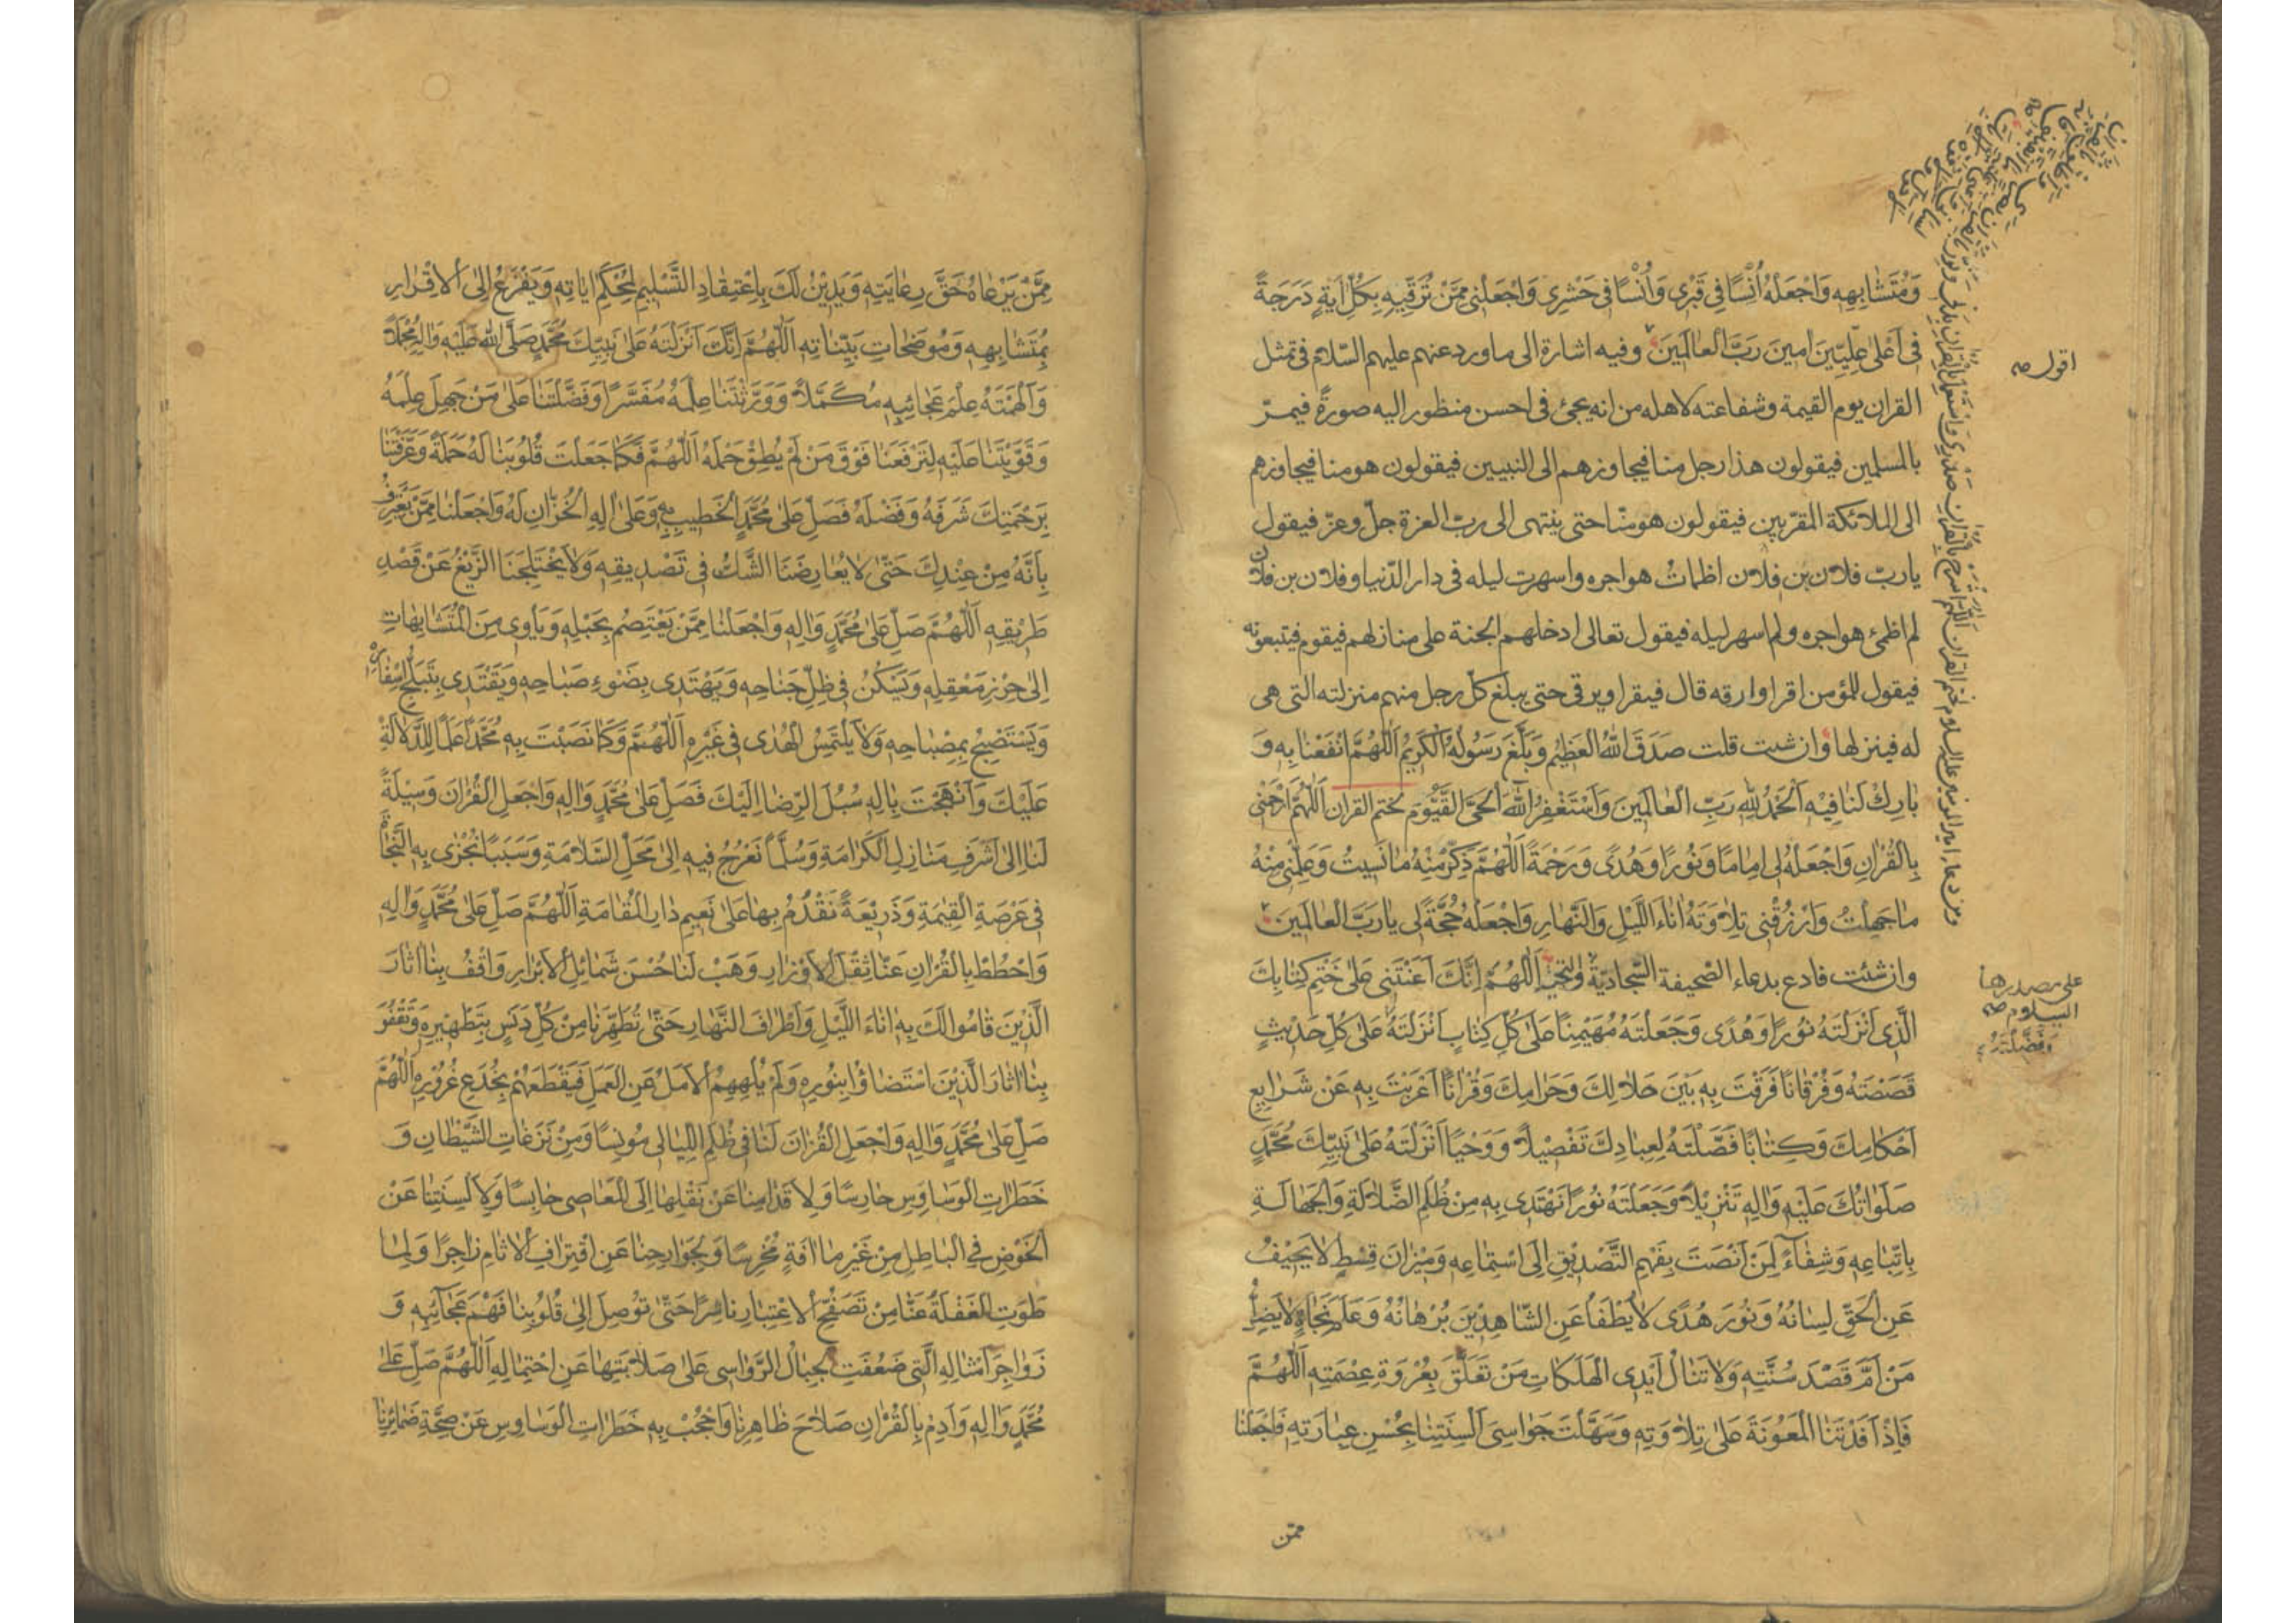 وَمُتَشَابِهِهِ وَاجْعَلْهُ اُنْسًا فِي قَبْرِي وَاُنْسًا فِي حَشْرِي وَاجْعَلْنِي مِمَّنْ تُرَقِّيهِ بِكُلِّ اٰيَةٍ دَرَجَةً
فِي اَعْلىٰ عِلِّيِّينَ اٰمِينَ رَبَّ الْعَالَمِينَ وفيه اشارة الى ما ورد عنهم عليهم السّلام فى تمثل
القران يوم القيمة وشفاعته لاهله من انه يجئ فى احسن منظور اليه صورةً فيمرّ
بالمسلمين فيقولون هذا رجل منا فيجاوزهم الى النبيين فيقولون هو منا فيجاوزهم
الى الملائكة المقرّبين فيقولون هو منّا حتى ينتهى الى ربّ العزة جلّ وعزّ فيقول
يا ربّ فلان بن فلان اظمات هواجره واسهرت ليله فى دار الدّنيا وفلان بن فلان
لم اظمئ هواجره ولم اسهر ليله فيقول تعالى ادخلهم الجنة على منازلهم فيقوم فيتبعونه
فيقول للمؤمن اقرا وارقه قال فيقرا ويرقى حتى يبلغ كلّ رجل منهم منزلته التى هى
له فينزلها وان شئت قلت صَدَقَ اللهُ الْعَظِيمُ وَبَلَّغَ رَسُولُهُ الْكَرِيمُ اَللّٰهُمَّ انْفَعْنَا بِهِ وَ
بَارِكْ لَنَا فِيْهِ اَلْحَمْدُ لِلّٰهِ رَبِّ الْعَالَمِينَ وَاَسْتَغْفِرُ اللهَ الْحَىَّ الْقَيُّومَ لختم القران اَللّٰهُمَّ ارْحَمْنِى
بِالْقُرْاٰنِ وَاجْعَلْهُ لِى اِمَامًا وَنُورًا وَهُدًى وَرَحْمَةً اَللّٰهُمَّ ذَكِّرْنِى مِنْهُ مَا نَسِيتُ وَعَلِّمْنِى مِنْهُ
مَا جَهِلْتُ وَارْزُقْنِى تِلَاوَتَهُ اٰنَاءَ اللَّيْلِ وَالنَّهَارِ وَاجْعَلْهُ حُجَّةً لِى يَا رَبَّ الْعَالَمِينَ
وان شئت فادع بدعاء الصّحيفة السّجاديّة اَللّٰهُمَّ اِنَّكَ اَعَنْتَنِى عَلىٰ خَتْمِ كِتَابِكَ
الَّذِى اَنْزَلْتَهُ نُورًا وَهُدًى وَجَعَلْتَهُ مُهَيْمِنًا عَلىٰ كُلِّ كِتَابٍ اَنْزَلْتَهُ عَلىٰ كُلِّ حَدِيْثٍ
قَصَصْتَهُ وَفُرْقَانًا فَرَقْتَ بِهِ بَيْنَ حَلَالِكَ وَحَرَامِكَ وَقُرْاٰنًا اَعْرَبْتَ بِهِ عَنْ شَرَايِعِ
اَحْكَامِكَ وَكِتَابًا فَصَّلْتَهُ لِعِبَادِكَ تَفْصِيْلًا وَوَحْيًا اَنْزَلْتَهُ عَلىٰ نَبِيِّكَ مُحَمَّدٍ
صَلَوَاتُكَ عَلَيْهِ وَاٰلِهِ تَنْزِيْلًا وَجَعَلْتَهُ نُورًا نَهْتَدِى بِهِ مِنْ ظُلَمِ الضَّلَالَةِ وَالْجَهَالَةِ
بِاتِّبَاعِهِ وَشِفَاءً لِمَنْ اَنْصَتَ بِفَهْمِ التَّصْدِيْقِ اِلَى اسْتِمَاعِهِ وَمِيْزَانَ قِسْطٍ لَا يَحِيْفُ
عَنِ الْحَقِّ لِسَانُهُ وَنُورَ هُدًى لَا يُطْفَأُ عَنِ الشَّاهِدِيْنَ بُرْهَانُهُ وَعَلَمَ نَجَاةٍ لَا يَضِلُّ
مَنْ اَمَّ قَصْدَ سُنَّتِهِ وَلَا تَنَالُ اَيْدِى الْهَلَكَاتِ مَنْ تَعَلَّقَ بِعُرْوَةِ عِصْمَتِهِ اَللّٰهُمَّ
فَاِذْ اَفَدْتَنَا الْمَعُوْنَةَ عَلىٰ تِلَاوَتِهِ وَسَهَّلْتَ جَوَاسِىَ اَلْسِنَتِنَا بِحُسْنِ عِبَارَتِهِ فَاجْعَلْنَا
ممّن
اقول صه
على مصدرها
السلام صه
ومن دعاء امير المؤمنين عليه السلام ختم القران اَللّٰهُمَّ اشرح بالقران صَدْرِي وَاسْتَعْمِلْ بِالْقُرْاٰنِ بَدَنِى وَنَوِّرْ
مِمَّنْ يَرْعَاهُ حَقَّ رِعَايَتِهِ وَيَدِيْنُ لَكَ بِاِعْتِقَادِ التَّسْلِيمِ لِمُحْكَمِ اٰيَاتِهِ وَيَفْزَعُ اِلَى الْاِقْرَارِ
بِمُتَشَابِهِهِ وَمُوضَحَاتِ بَيِّنَاتِهِ اَللّٰهُمَّ اِنَّكَ اَنْزَلْتَهُ عَلىٰ نَبِيِّكَ مُحَمَّدٍ صَلَّى اللهُ عَلَيْهِ وَاٰلِهِ مُجْمَلًا
وَاَلْهَمْتَهُ عِلْمَ عَجَائِبِهِ مُكَمَّلًا وَوَرَّثْتَنَا عِلْمَهُ مُفَسَّرًا وَفَضَّلْتَنَا عَلىٰ مَنْ جَهِلَ عِلْمَهُ
وَقَوَّيْتَنَا عَلَيْهِ لِتَرْفَعَنَا فَوْقَ مَنْ لَمْ يُطِقْ حَمْلَهُ اَللّٰهُمَّ فَكَمَا جَعَلْتَ قُلُوبَنَا لَهُ حَمَلَةً وَعَرَّفْتَنَا
بِرَحْمَتِكَ شَرَفَهُ وَفَضْلَهُ فَصَلِّ عَلىٰ مُحَمَّدٍ الْخَطِيبِ بِهِ وَعَلىٰ اٰلِهِ الْخُزَّانِ لَهُ وَاجْعَلْنَا مِمَّنْ يَعْتَرِفُ
بِاَنَّهُ مِنْ عِنْدِكَ حَتّىٰ لَا يُعَارِضَنَا الشَّكُّ فِى تَصْدِيقِهِ وَلَا يَخْتَلِجَنَا الزَّيْغُ عَنْ قَصْدِ
طَرِيْقِهِ اَللّٰهُمَّ صَلِّ عَلىٰ مُحَمَّدٍ وَاٰلِهِ وَاجْعَلْنَا مِمَّنْ يَعْتَصِمُ بِحَبْلِهِ وَيَأْوِى مِنَ الْمُتَشَابِهَاتِ
اِلىٰ حِرْزِ مَعْقِلِهِ وَيَسْكُنُ فِى ظِلِّ جَنَاحِهِ وَيَهْتَدِى بِضَوْءِ صَبَاحِهِ وَيَقْتَدِى بِتَبَلُّجِ اِسْفَارِهِ
وَيَسْتَصْبِحُ بِمِصْبَاحِهِ وَلَا يَلْتَمِسُ الْهُدىٰ فِى غَيْرِهِ اَللّٰهُمَّ وَكَمَا نَصَبْتَ بِهِ مُحَمَّدًا عَلَمًا لِلدَّلَالَةِ
عَلَيْكَ وَاَنْهَجْتَ بِاٰلِهِ سُبُلَ الرِّضَا اِلَيْكَ فَصَلِّ عَلىٰ مُحَمَّدٍ وَاٰلِهِ وَاجْعَلِ الْقُرْاٰنَ وَسِيْلَةً
لَنَا اِلىٰ اَشْرَفِ مَنَازِلِ الْكَرَامَةِ وَسُلَّمًا نَعْرُجُ فِيهِ اِلىٰ مَحَلِّ السَّلَامَةِ وَسَبَبًا نُجْزىٰ بِهِ النَّجَاةَ
فِى عَرْصَةِ الْقِيٰمَةِ وَذَرِيْعَةً نَقْدُمُ بِهَا عَلىٰ نَعِيمِ دَارِ الْمُقَامَةِ اَللّٰهُمَّ صَلِّ عَلىٰ مُحَمَّدٍ وَاٰلِهِ
وَاحْطُطْ بِالْقُرْاٰنِ عَنَّا ثِقَلَ الْاَوْزَارِ وَهَبْ لَنَا حُسْنَ شَمَائِلِ الْاَبْرَارِ وَاقْفُ بِنَا اٰثَارَ
الَّذِيْنَ قَامُوا لَكَ بِهِ اٰنَاءَ اللَّيْلِ وَاَطْرَافَ النَّهَارِ حَتّىٰ تُطَهِّرَنَا مِنْ كُلِّ دَنَسٍ بِتَطْهِيْرِهِ وَتَقْفُوَ
بِنَا اٰثَارَ الَّذِيْنَ اسْتَضَاؤُا بِنُورِهِ وَلَمْ يُلْهِهِمُ الْاَمَلُ عَنِ الْعَمَلِ فَيَقْطَعَهُمْ بِخُدَعِ غُرُوْرِهِ اَللّٰهُمَّ
صَلِّ عَلىٰ مُحَمَّدٍ وَاٰلِهِ وَاجْعَلِ الْقُرْاٰنَ لَنَا فِى ظُلَمِ اللَّيَالِى مُونِسًا وَمِنْ نَزَغَاتِ الشَّيْطَانِ وَ
خَطَرَاتِ الْوَسَاوِسِ حَارِسًا وَلِاَقْدَامِنَا عَنْ نَقْلِهَا اِلَى الْمَعَاصِى حَابِسًا وَلِاَلْسِنَتِنَا عَنْ
الْخَوْضِ فِى الْبَاطِلِ مِنْ غَيْرِ مَا اٰفَةٍ مُخْرِسًا وَلِجَوَارِحِنَا عَنِ اقْتِرَافِ الْاٰثَامِ زَاجِرًا وَلِمَا
طَوَتِ الْغَفْلَةُ عَنَّا مِنْ تَصَفُّحِ الْاِعْتِبَارِ نَاشِرًا حَتّىٰ تُوصِلَ اِلىٰ قُلُوْبِنَا فَهْمَ عَجَائِبِهِ وَ
زَوَاجِرَ اَمْثَالِهِ الَّتِى ضَعُفَتِ الْجِبَالُ الرَّوَاسِى عَلىٰ صَلَابَتِهَا عَنِ احْتِمَالِهِ اَللّٰهُمَّ صَلِّ عَلىٰ
مُحَمَّدٍ وَاٰلِهِ وَاَدِمْ بِالْقُرْاٰنِ صَلَاحَ ظَاهِرِنَا وَاحْجُبْ بِهِ خَطَرَاتِ الْوَسَاوِسِ عَنْ صِحَّةِ ضَمَائِرِنَا